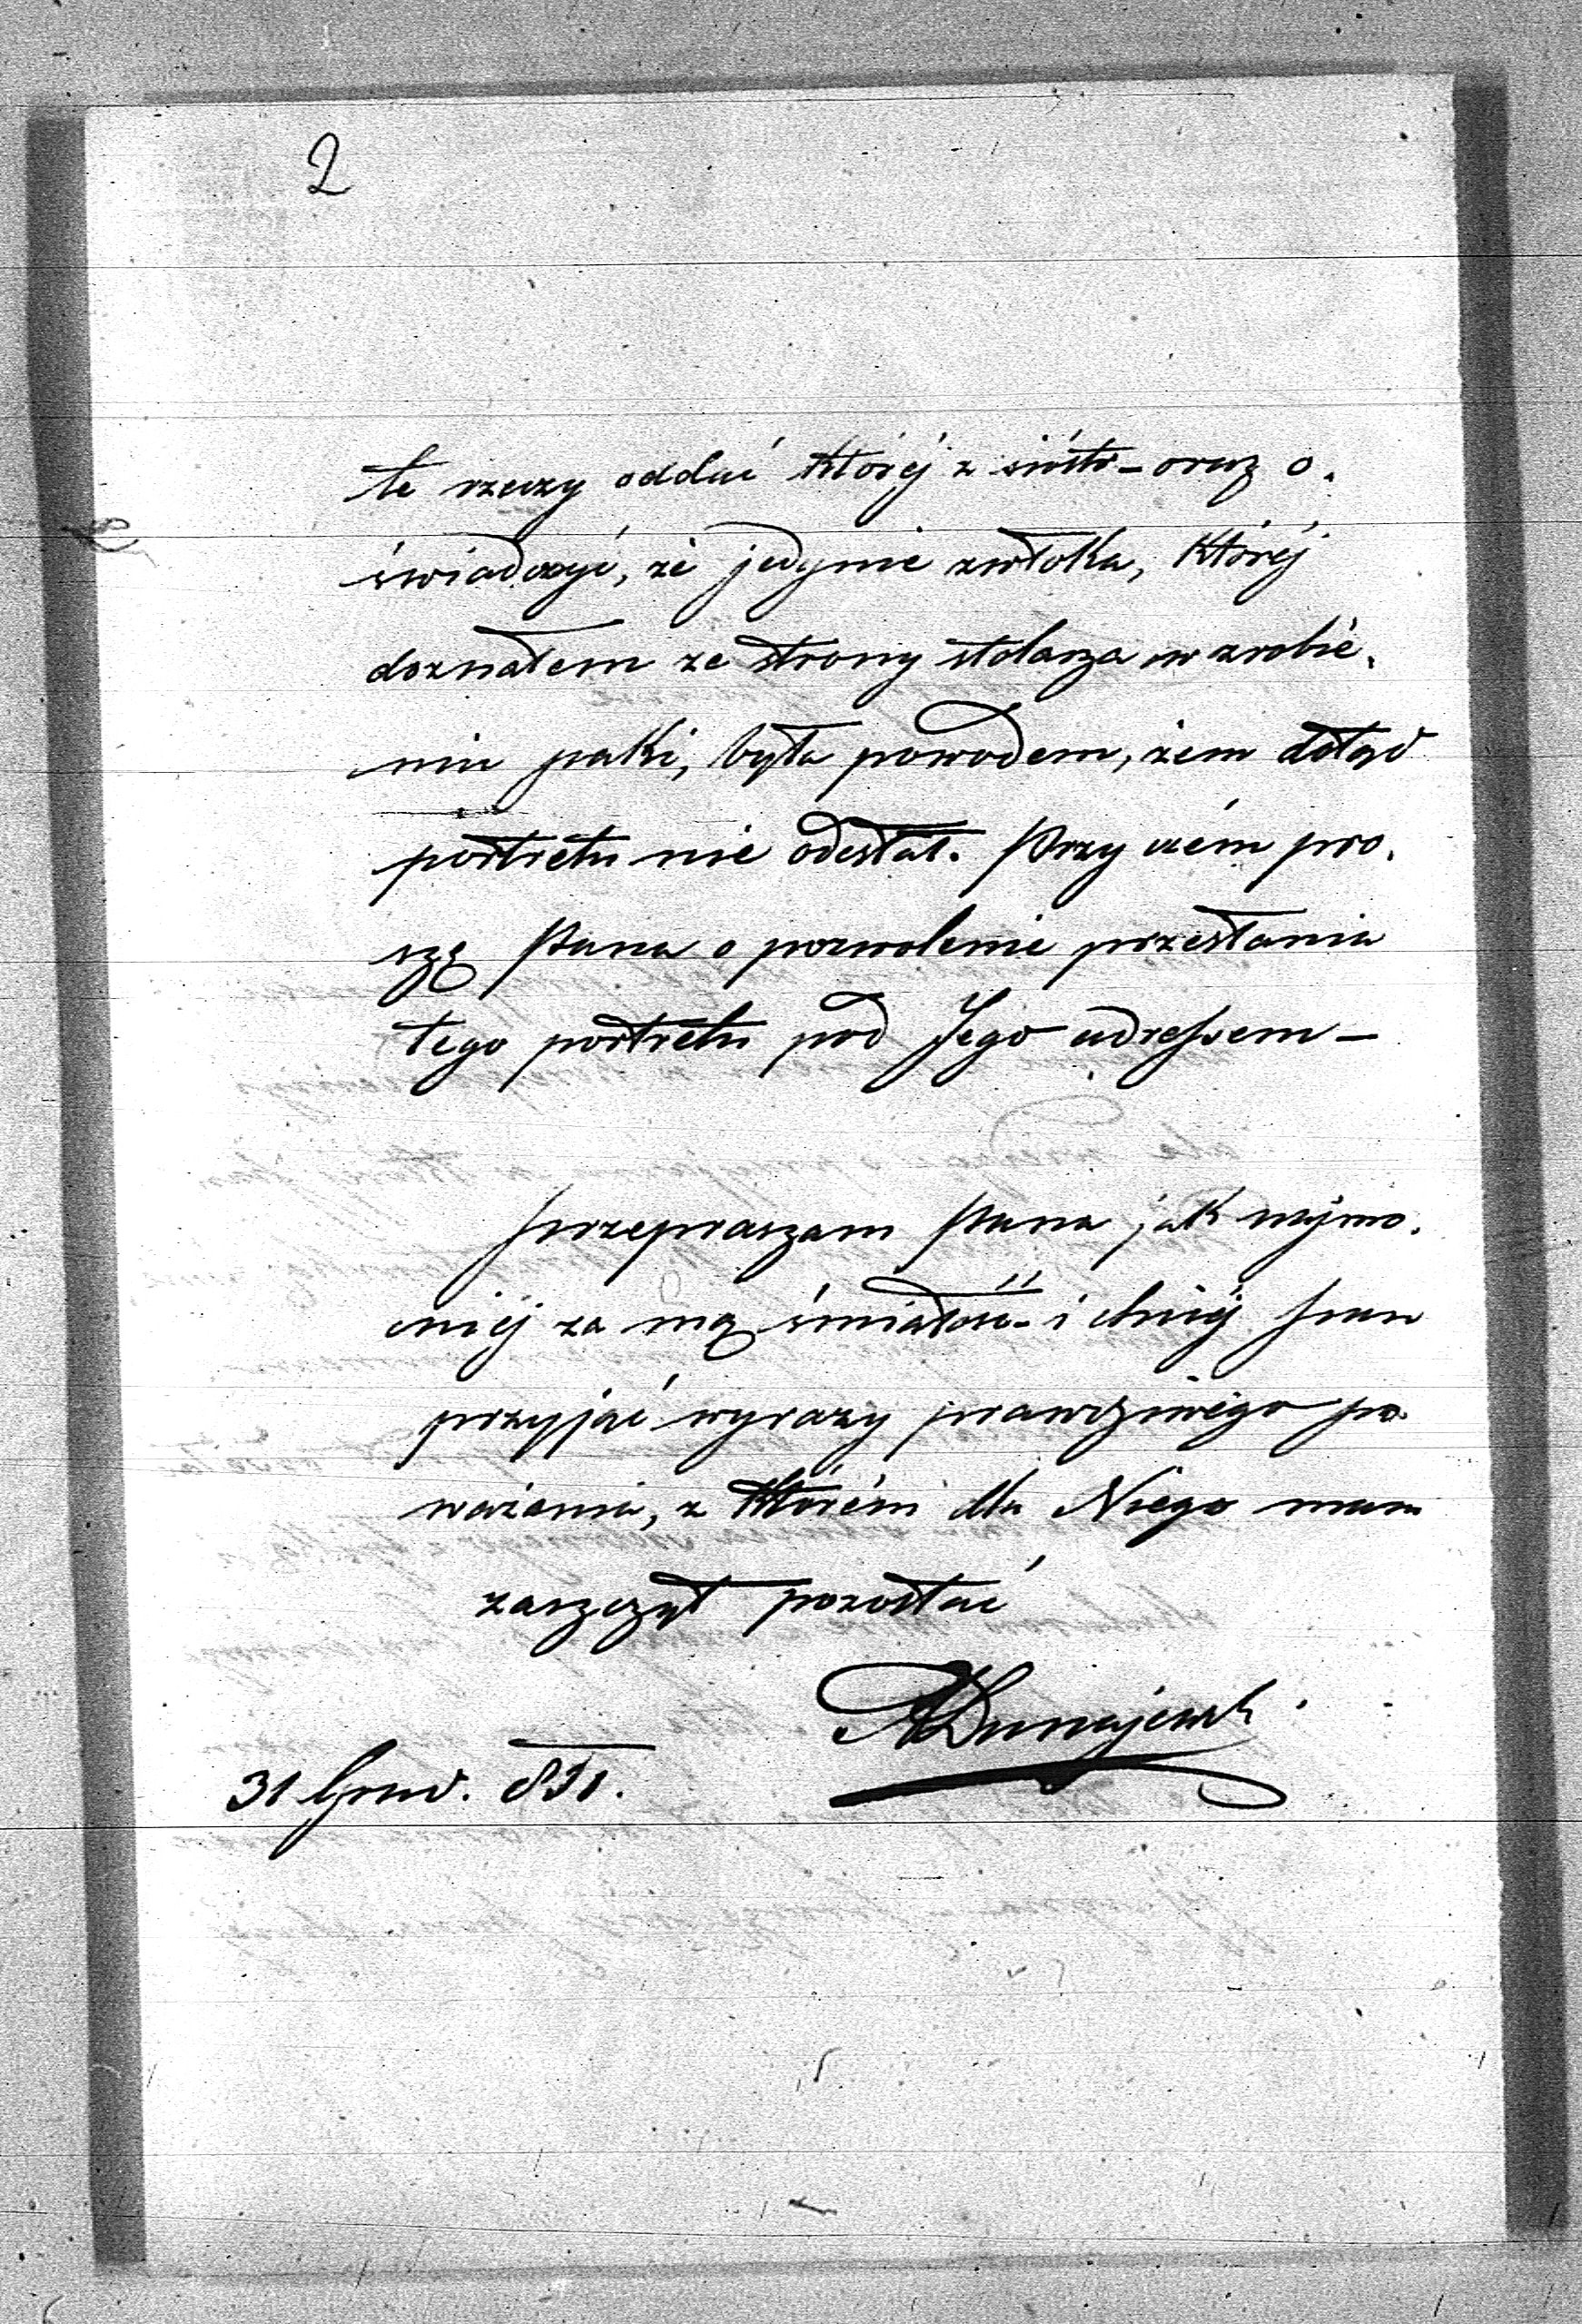 2
te rzeczy oddać któréj z sióstr – oraz o.
świadczyć, że jedynie zwłoka, któréj
doznałem ze strony stolarza w zrobie.
niu paki, była powodem, żem dotąd
portretu nie odesłał. Przy czém pro.
szę Pana o pozwolenie przesłania
tego portretu pod Jego adressem –
Przepraszam Pana jak najmo.
cniéj za mą śmiałość – i chciéj Pan
przyjąć wyrazy prawdziwego po.
ważania, z którém dla Niego mam
zaszczyt pozostać
ADunajewski
31 Grud. 851.